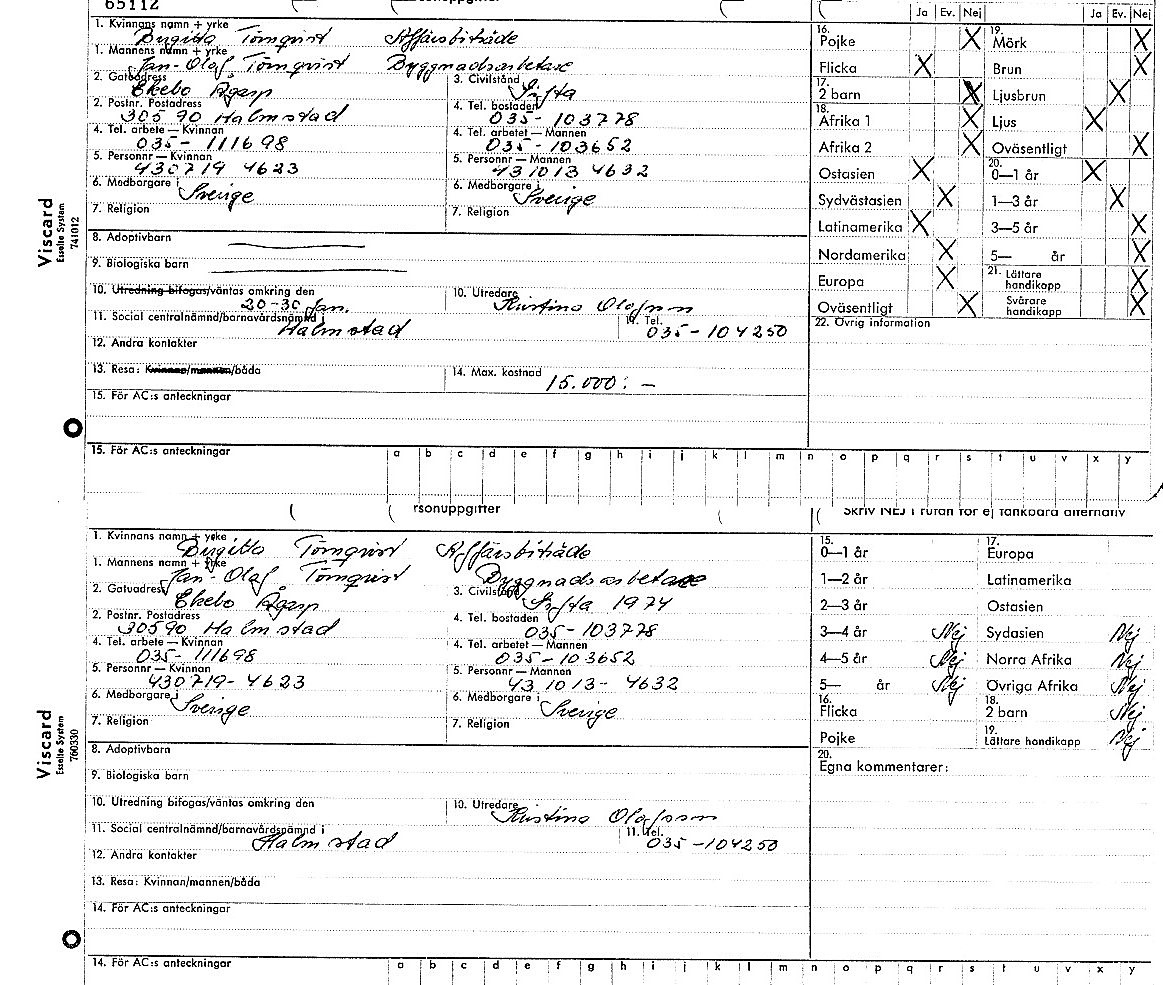 65112
rsonuppgifter
Ja Ev. Nej Ja Ev. Nej
1. Kvinnans namn + yrke
Birgitta Törnqvist Affärsbiträde
1. Mannens namn + yrke
Jan-Olof Törnqvist Byggnadsarbetare
2. Gatuadress
Ekebo Rgarp
3. Civilstånd
Gifta
2. Postnr. Postadress
305 90 Halmstad
4. Tel. bostaden
035-103778
4. Tel. arbete — Kvinnan
035-111698
4. Tel. arbetet — Mannen
035-103652
5. Personnr — Kvinnan
430719 4623
5. Personnr — Mannen
431013 4632
6. Medborgare i
Sverige
6. Medborgare i
Sverige
7. Religion
7. Religion
8. Adoptivbarn
9. Biologiska barn
10. Utredning bifogas/väntas omkring den
20-30 Jan.
10. Utredare
Kristina Olofsson
11. Social centralnämnd/barnavårdsnämnd i
Halmstad
11. Tel.
035-104250
12. Andra kontakter
13. Resa: Kvinnan/mannen/båda
14. Max. kostnad
15.000:-
15. För AC:s anteckningar
15. För AC:s anteckningar
a b c d e f g h i j k l m n o p q r s t u v x y
16.
Pojke X
Flicka X
17.
2 barn X
18.
Afrika 1 X
Afrika 2 X
Ostasien X
Sydvästasien X
Latinamerika X
Nordamerika X
Europa X
Oväsentligt X
19.
Mörk X
Brun X
Ljusbrun X
Ljus X
Oväsentligt X
20.
0—1 år X
1—3 år X
3—5 år X
5— år X
21. Lättare handikapp X
Svårare handikapp X
22. Övrig information
Viscard
Esselte System
741012
rsonuppgifter
Skriv NEJ i rutan för ej tänkbara alternativ
1. Kvinnans namn + yrke
Birgitta Törnqvist Affärsbiträde
1. Mannens namn + yrke
Jan-Olof Törnqvist Byggnadsarbetare
2. Gatuadress
Ekebo Rgarp
3. Civilstånd
Gifta 1974
2. Postnr. Postadress
30590 Halmstad
4. Tel. bostaden
035-103778
4. Tel. arbete — Kvinnan
035-111698
4. Tel. arbetet — Mannen
035-103652
5. Personnr — Kvinnan
430719-4623
5. Personnr — Mannen
431013-4632
6. Medborgare i
Sverige
6. Medborgare i
Sverige
7. Religion
7. Religion
8. Adoptivbarn
9. Biologiska barn
10. Utredning bifogas/väntas omkring den
10. Utredare
Kristina Olofsson
11. Social centralnämnd/barnavårdsnämnd i
Halmstad
11. Tel.
035-104250
12. Andra kontakter
13. Resa: Kvinnan/mannen/båda
14. För AC:s anteckningar
14. För AC:s anteckningar
a b c d e f g h i j k l m n o p q r s t u v x y
15.
0—1 år
1—2 år
2—3 år
3—4 år Nej
4—5 år Nej
5— år Nej
16.
Flicka
Pojke
17.
Europa
Latinamerika
Ostasien
Sydasien Nej
Norra Afrika Nej
Övriga Afrika Nej
18.
2 barn Nej
19.
Lättare handikapp Nej
20.
Egna kommentarer:
Viscard
Esselte System
760330